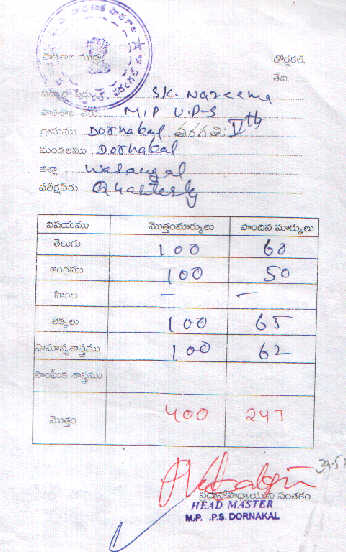 డోర్నకల్,
తేది
S/K. Nazeema
M.P U.P.S
గ్రామము Dornakal తరగతి: Vth
మండలము Dornakal
జిల్లా Warangal
పరీక్షపేరు Quarterly
విషయము మొత్తంమార్కులు పొందిన మార్కులు
తెలుగు 100 60
ఆంగ్లము 100 50
హిందీ — —
లెక్కలు 100 65
సామాన్యశాస్త్రము 100 62
సాంఘిక శాస్త్రము
మొత్తం 400 247
ప్రధానోపాధ్యాయుని సంతకం
HEAD MASTER
M.P. .P.S. DORNAKAL